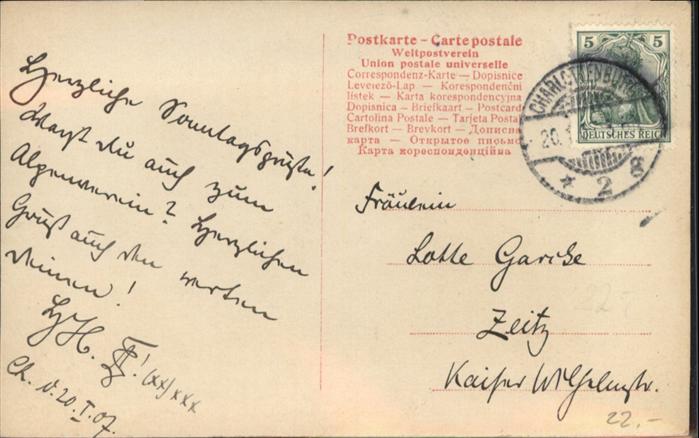 Herzliche Sonntagsgrüße!
Magst Du auch zum
Alpenverein? Herzlichen
Gruß auch den werten
Deinen!
H.
Ch. d. 20. I. 07.
Postkarte – Carte postale
Weltpostverein
Union postale universelle
Correspondenz-Karte — Dopisnice
Levelező-Lap — Korespondenční
lístek — Karta korespondencyjna
Dopisnica — Briefkaart — Postcard
Cartolina Postale — Tarjeta Postal
Brefkort — Brevkort — Дописна
карта — Открытое письмо
Карта кореспонденційна
5 5
DEUTSCHES REICH
CHARLOTTENBURG
20.
* 2 g
Fräulein
Lotte Garcke
Zeitz
Kaiser Wilhelmstr.
22.-
22.-